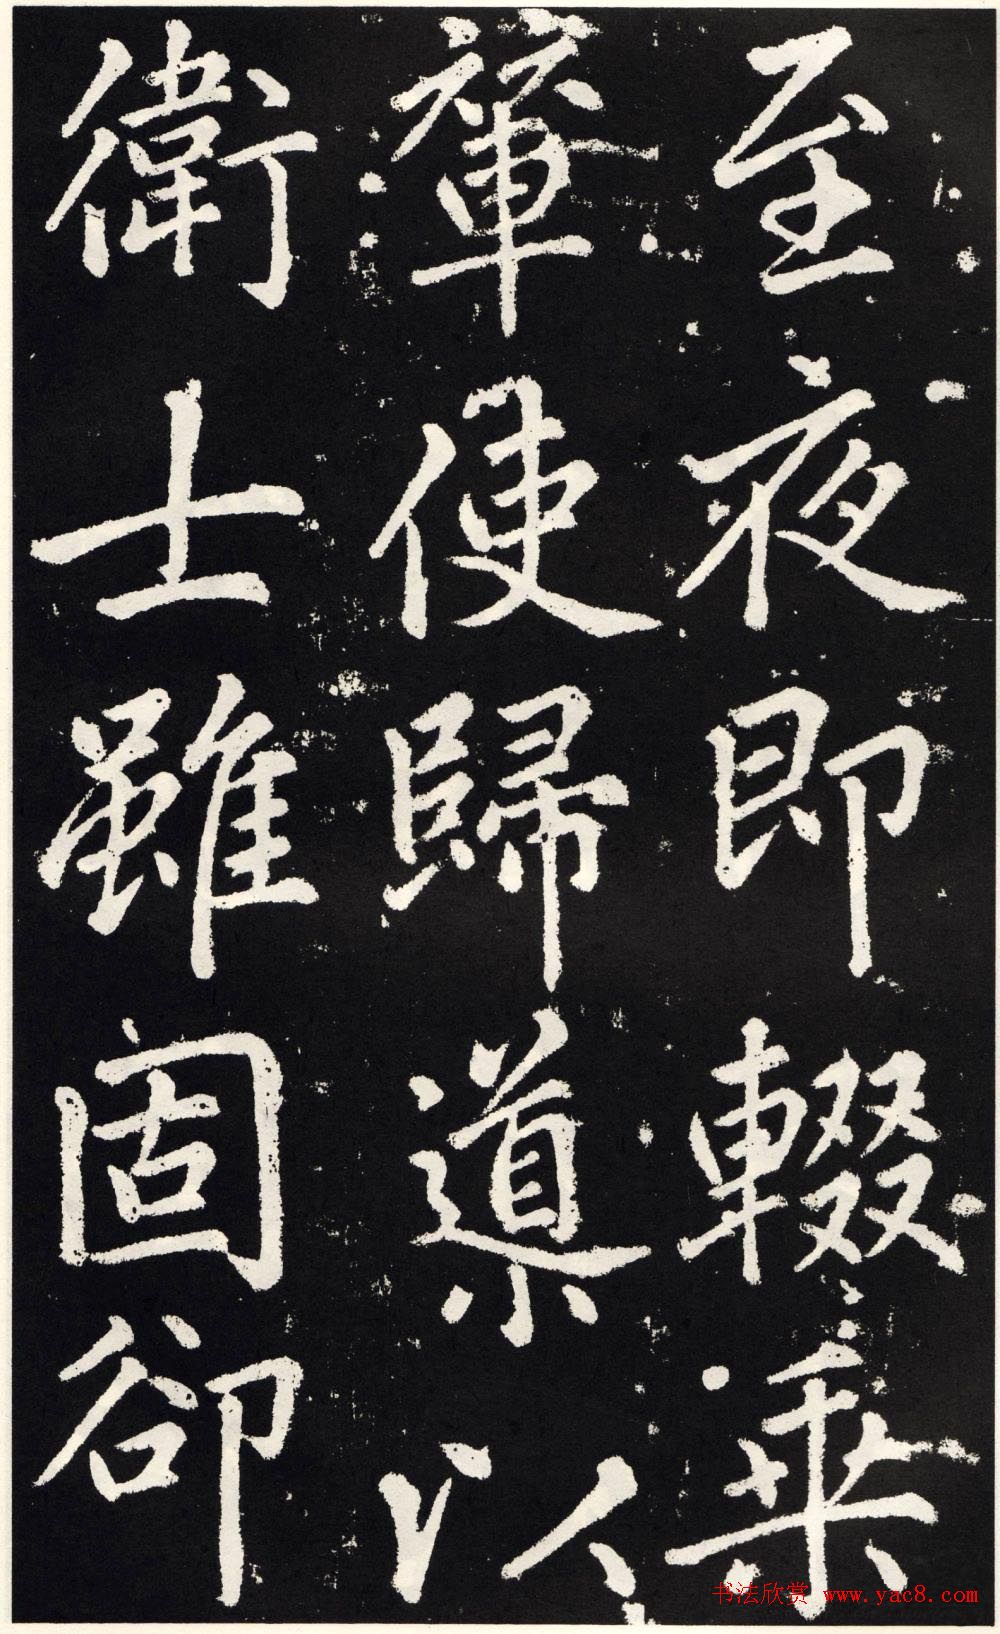 至夜即輟乘
輦使歸導以
衛士雖固卻
书法欣赏 www.yac8.com